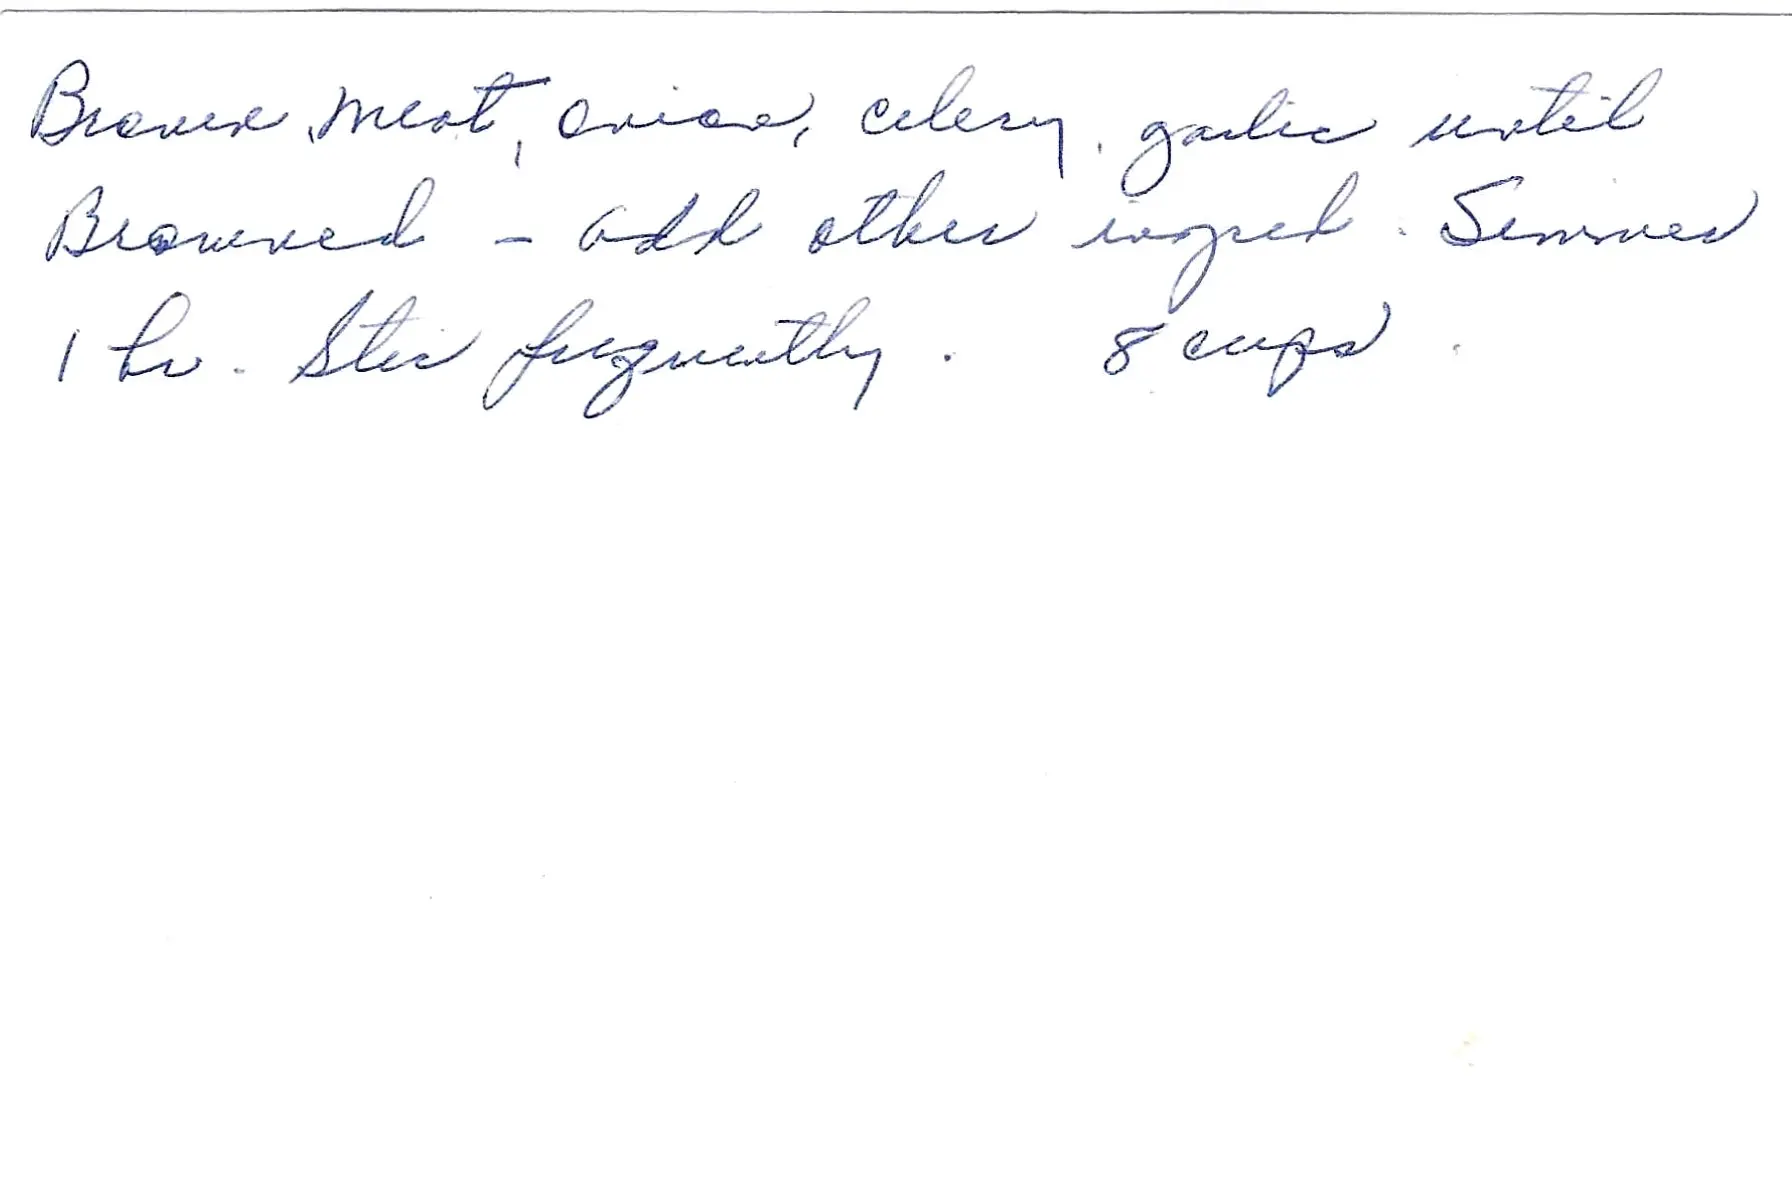 Brown meat, onion, celery, garlic until
Browned - add other ingred. Simmer
1 hr. Stir frequently. 8 cups.